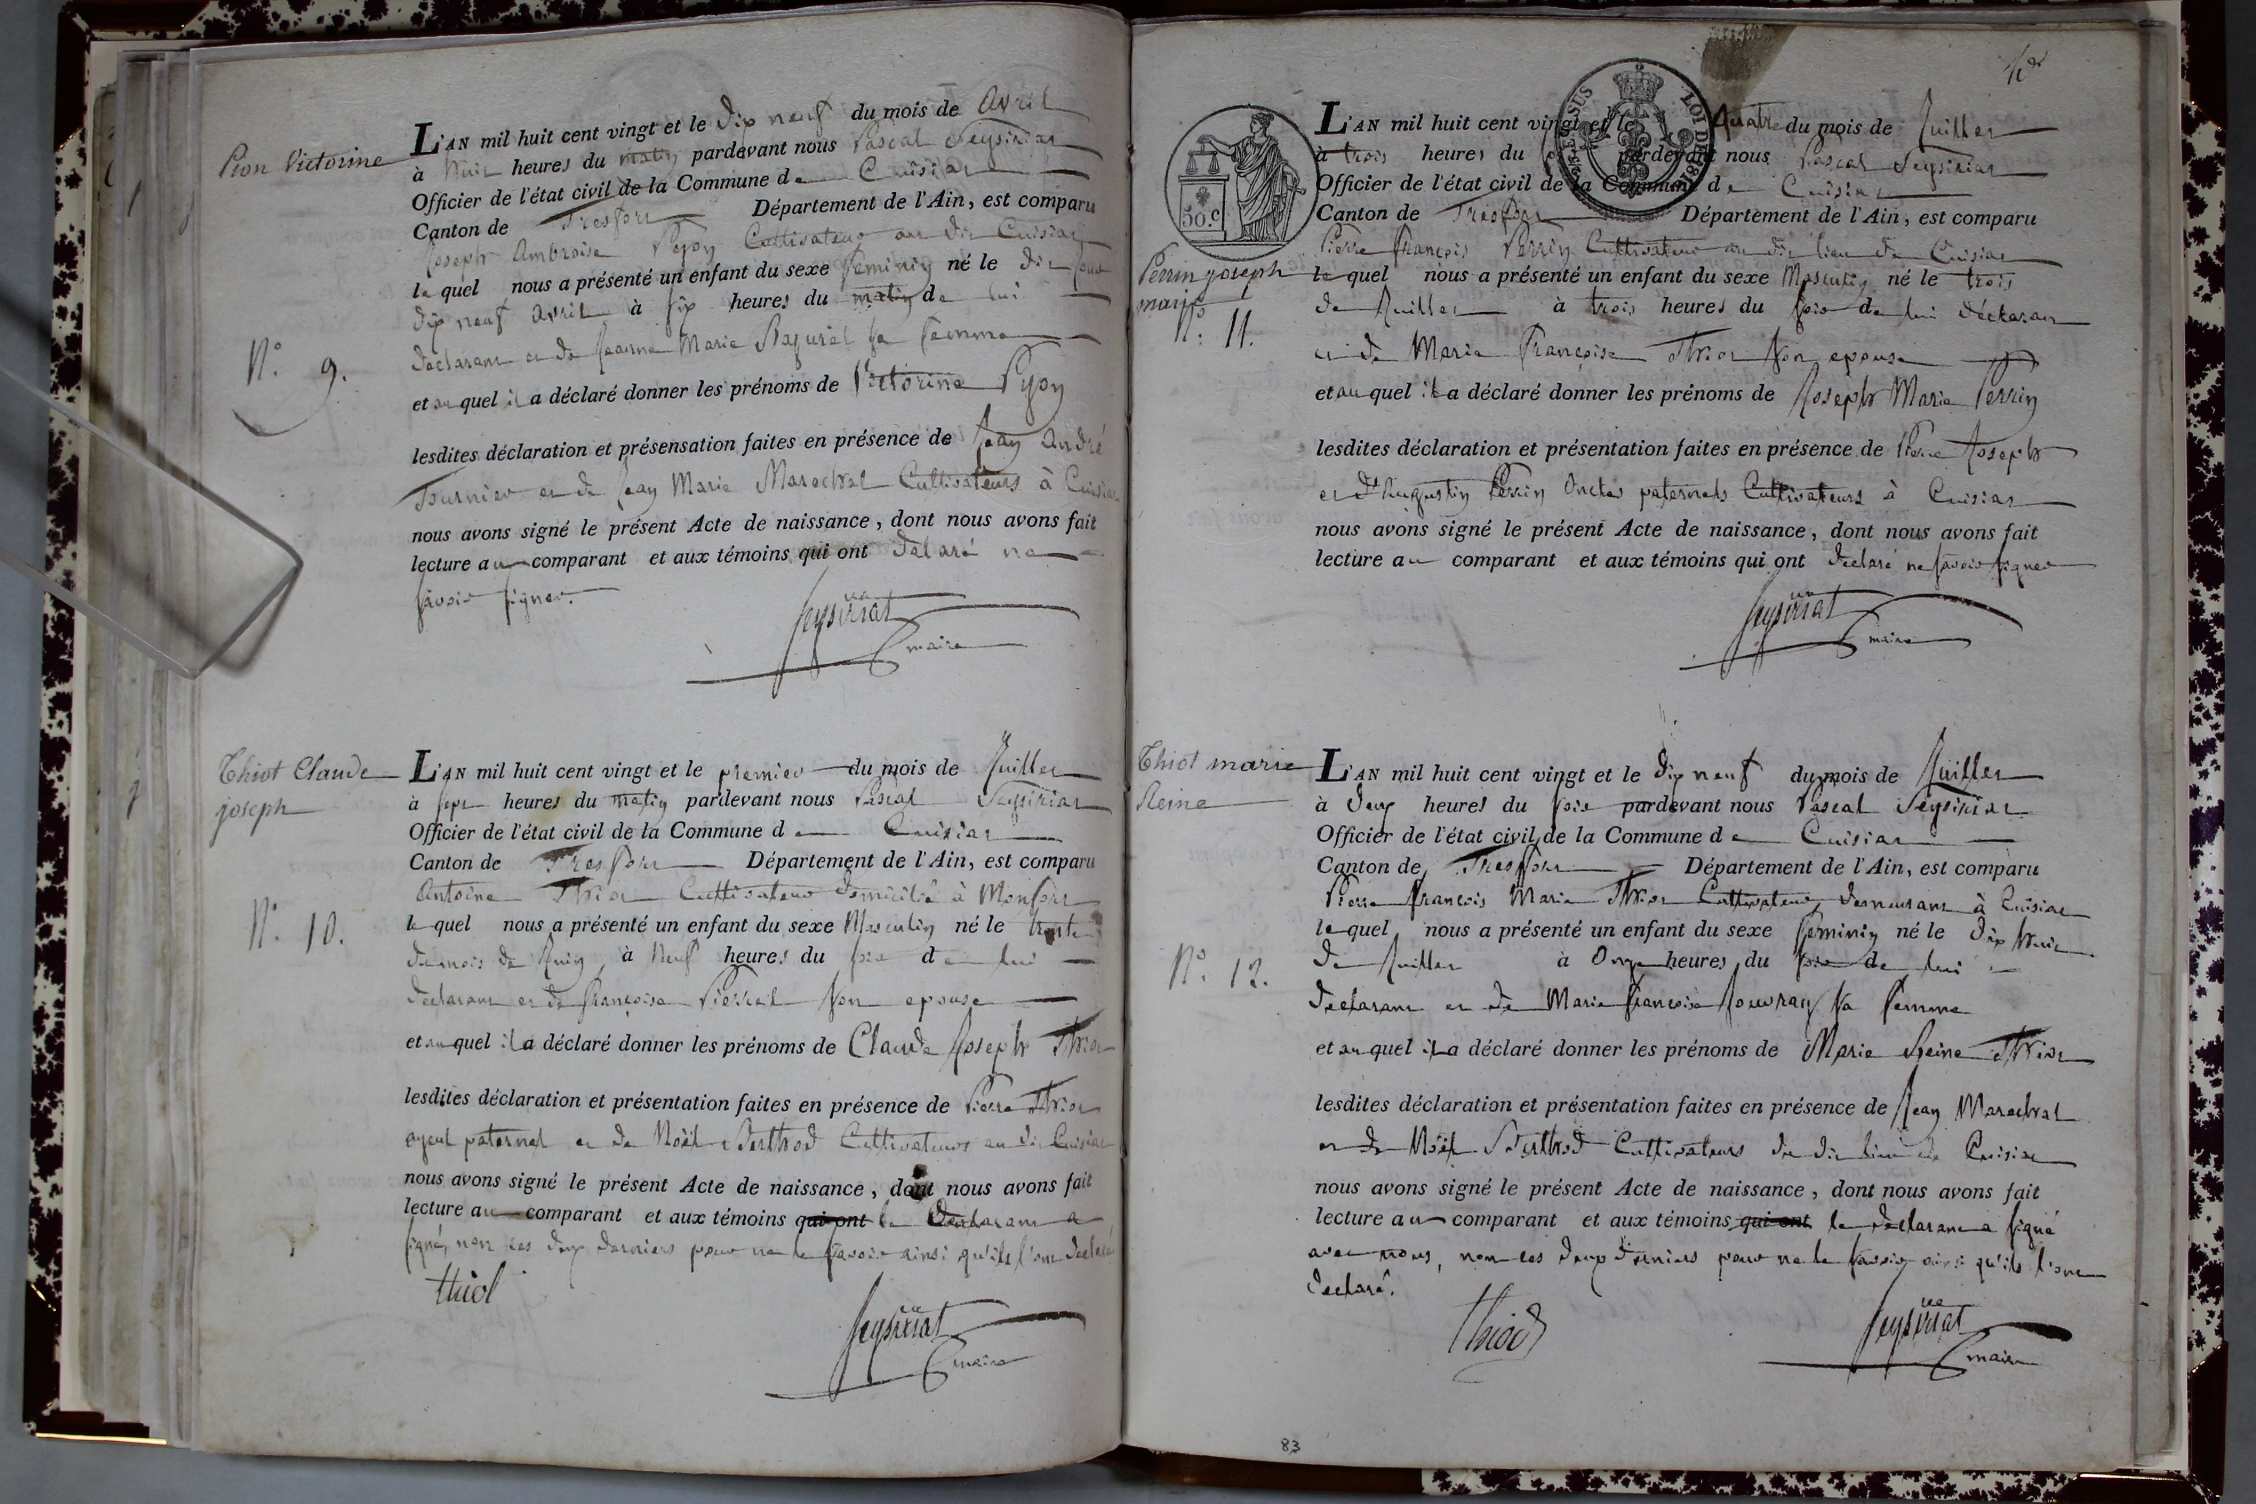 Pion Victorine
N.o 9.
L'AN mil huit cent vingt et le dix neuf du mois de Avril
à huit heures du matin pardevant nous Pascal Seysiriat
Officier de l'état civil de la Commune de Cuisiat
Canton de Tresfort Département de l'Ain, est comparu
Joseph Ambroise Pyon Cultivateur au dit Cuisiat
le quel nous a présenté un enfant du sexe feminin né le dit jour
dix neuf avril à six heures du matin de lui
declarant et de Jeanne Marie sa femme
et au quel il a déclaré donner les prénoms de Victorine Pyon
lesdites déclaration et présensation faites en présence de Jean André
Tournier et de Jean Marie Marechal Cultivateurs à Cuisiat
nous avons signé le présent Acte de naissance, dont nous avons fait
lecture au comparant et aux témoins qui ont delaré ne
savoir signer.
Seysiriat
maire
Thiot Claude
joseph
N.o 10.
L'AN mil huit cent vingt et le premier du mois de Juillet
à sept heures du matin pardevant nous Pascal Seysiriat
Officier de l'état civil de la Commune de Cuisiat
Canton de Tresfort Département de l'Ain, est comparu
Antoine Thiot Cultivateur domicilié à Monfort
le quel nous a présenté un enfant du sexe Masculin né le trente
du mois de Juin à Neuf heures du soir de lui
declarant et de françoise Pierrel son epouse
et au quel il a déclaré donner les prénoms de Claude Joseph Thiot
lesdites déclaration et présentation faites en présence de Pierre Thiot
ayeul paternel et de Noël Berthod Cultivateurs au dit Cuisiat
nous avons signé le présent Acte de naissance, dont nous avons fait
lecture au comparant et aux témoins qui ont le declarant a
signé, non les deux derniers pour ne le savoir ainsi qu'ils l'ont declaré
thiol
Seysiriat
maire
50.c
LOI DE 181
Perrin joseph
marie
N.o 11.
L'AN mil huit cent vingt et le Quatre du mois de Juillet
à trois heures du pardevant nous Pascal Seysiriat
Officier de l'état civil de la Commune de Cuisiat
Canton de Tresfort Département de l'Ain, est comparu
Pierre François Perrin Cultivateur au dit lieu de Cuisiat
le quel nous a présenté un enfant du sexe Masculin né le trois
de Juillet à trois heures du soir de lui déclarant
et de Marie Françoise Thiot son epouse
et au quel il a déclaré donner les prénoms de Joseph Marie Perrin
lesdites déclaration et présentation faites en présence de Pierre Joseph
et d'Augustin Perrin Oncles paternels Cultivateurs à Cuisiat
nous avons signé le présent Acte de naissance, dont nous avons fait
lecture au comparant et aux témoins qui ont declaré ne savoir signer
Seysiriat
maire
Thiot marie
Reine
N.o 12.
L'AN mil huit cent vingt et le dix neuf du mois de Juillet
à deux heures du soir pardevant nous Pascal Seysiriat
Officier de l'état civil de la Commune de Cuisiat
Canton de Tresfort Département de l'Ain, est comparu
Pierre François Marie Thiot Cultivateur, demeurant à Cuisiat
le quel nous a présenté un enfant du sexe feminin né le dix huit
de Juillet à Onze heures du soir de lui
declarant et de Marie françoise Jouvray sa femme
et au quel il a déclaré donner les prénoms de Marie Reine Thiot
lesdites déclaration et présentation faites en présence de Jean Marechal
et de Noël Berthod Cultivateurs du dit lieu de Cuisiat
nous avons signé le présent Acte de naissance, dont nous avons fait
lecture au comparant et aux témoins qui ont le declarant a signé
avec nous, non les deux derniers pour ne le savoir ainsi qu'ils l'ont
declaré.
thiod
Seysiriat
maire
83